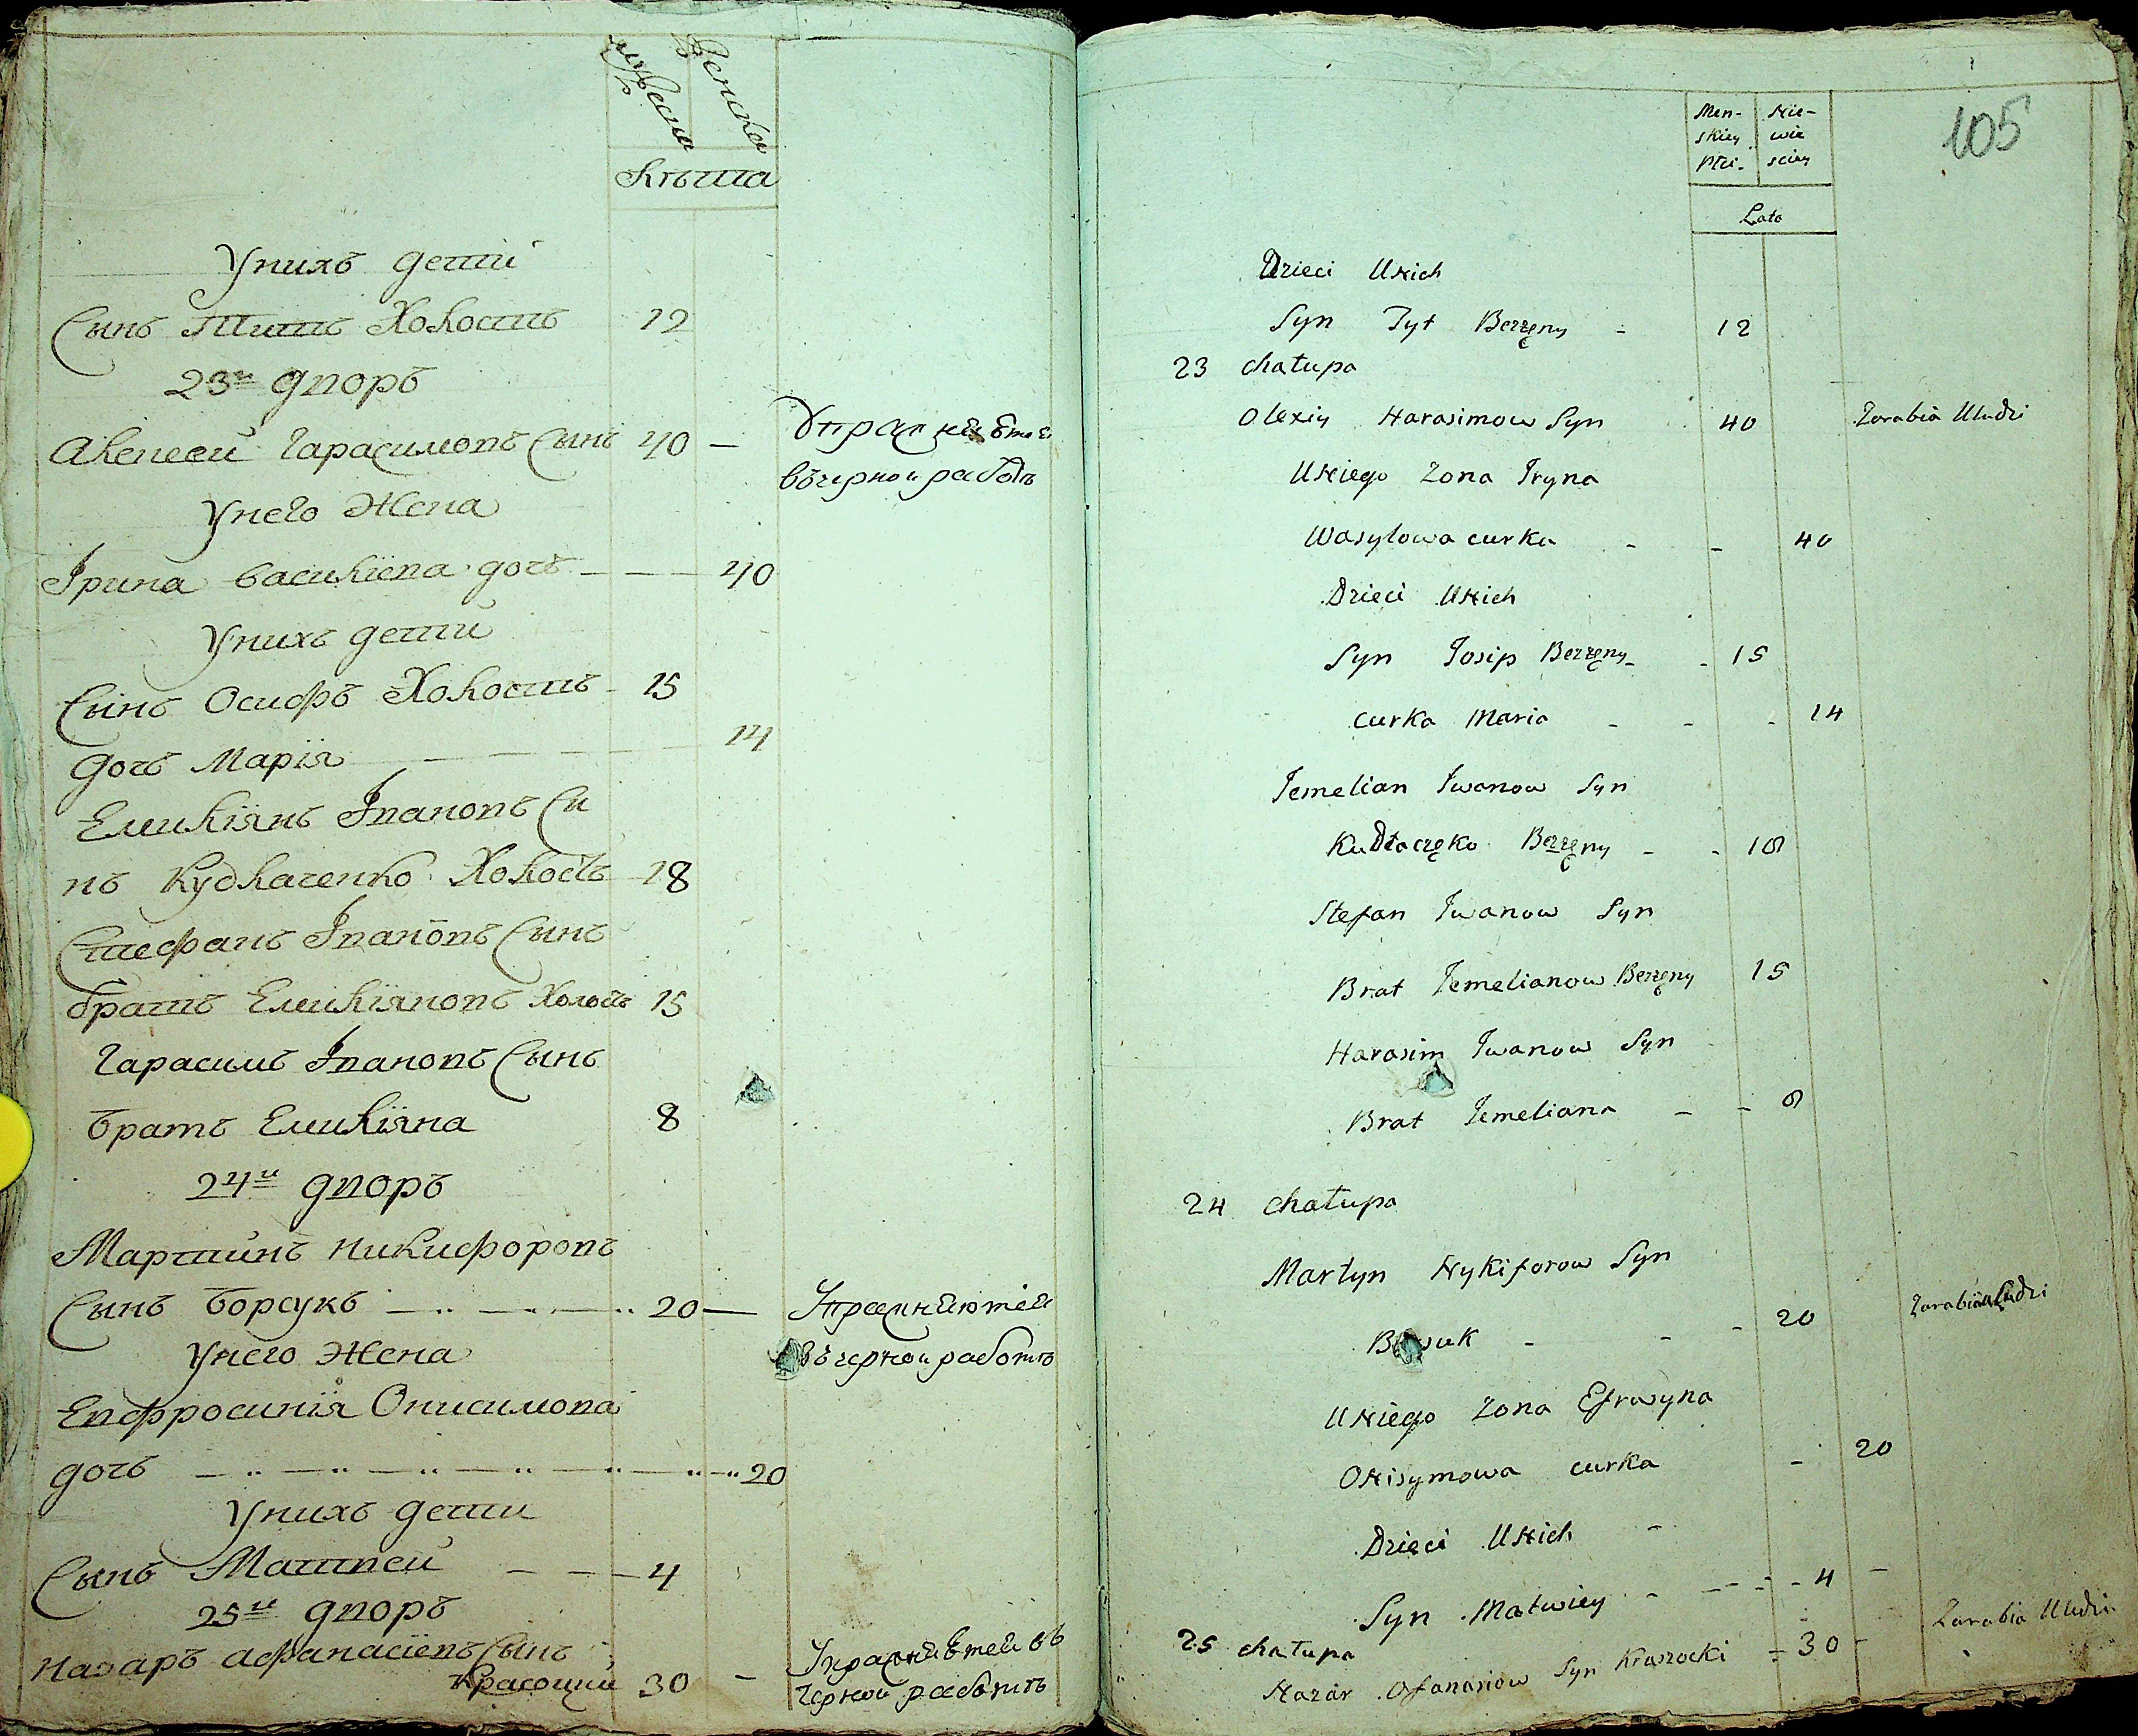 мужеска
Женска
Лѣта
Унихъ дети
Сынъ Титъ Холостъ 12
23й дворъ
Алексей Гарасимовъ Сынъ 40 — Упражняется
вчерной работѣ
Унего Жена
Ірина Василіева дочь — — 40
Унихъ дети
Сынъ Осифъ Холостъ 15
дочь Марія — — 14
Емиліянъ Івановъ Сы
нъ Кудлаченко Холостъ 18
Стефанъ Івановъ Сынъ
братъ Емиліяновъ Холостъ 15
Гарасимъ Івановъ Сынъ
братъ Емиліяна 8
24й дворъ
Мартинъ Никифоровъ
Сынъ Борсукъ — — — 20 — Упражняется
въ черной работѣ
Унего Жена
Евфросинія Онисимова
дочь — — — — — — 20
Унихъ дети
Сынъ Матвей — — — 4
25й дворъ
Назаръ Афанасіевъ Сынъ
Красоцкий 30 — Упражняется въ
черной работѣ
105
Men-
skiey
Płci-
Nie-
wie
sciey
Lata
Dzieci Unich
Syn Tyt Bezżęny - 12
23 chałupa
Olexiy Harasimow Syn 40 Zarabia Uludzi
Uniego Zona Iryna
Wasylowa curka - - 40
Dzieci Unich
Syn Iosip Bezżęny - - 15
curka Maria - - - 14
Iemelian Iwanow Syn
Kudłaczęko Bezżęny - - 18
Stefan Iwanow Syn
Brat Iemelianow Bezżęny 15
Harasim Iwanow Syn
Brat Iemeliana - - 8
24 chałupa
Martyn Nykiforow Syn
Borsuk - - - 20 Zarabia Uludzi
Uniego Zona Efrosyna
Onisymowa curka - 20
Dzieci Unich -
Syn Matwiey - - - - 4 -
25 chałupa
Nazar Ofanasiow Syn Kraszocki - 30 - Zarabia Uludzi